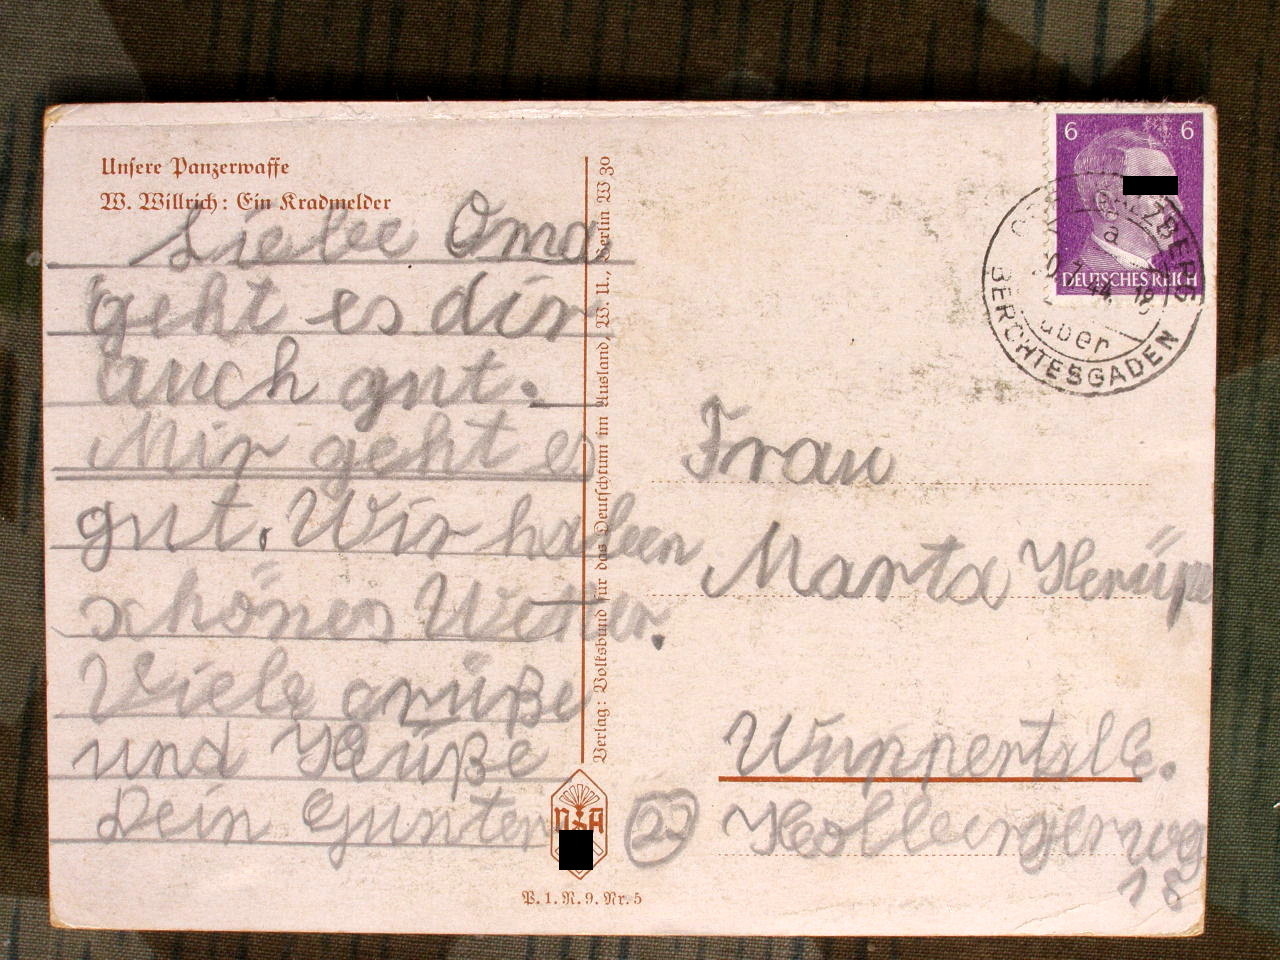 Unsere Panzerwaffe
W. Willrich: Ein Kradmelder
Liebe Oma
geht es dir
auch gut.
Mir geht es
gut. Wir haben
schönes Wetter.
Viele grüße
und Küße
Dein Gunter
Verlag: Volksbund für das Deutschtum im Ausland, W. U., Berlin W 30
VDA
P. 1. R. 9. Nr. 5
6 6
DEUTSCHES REICH
a
18
über
BERCHTESGADEN
Frau
Marta
Wuppertal E.
(22)
18